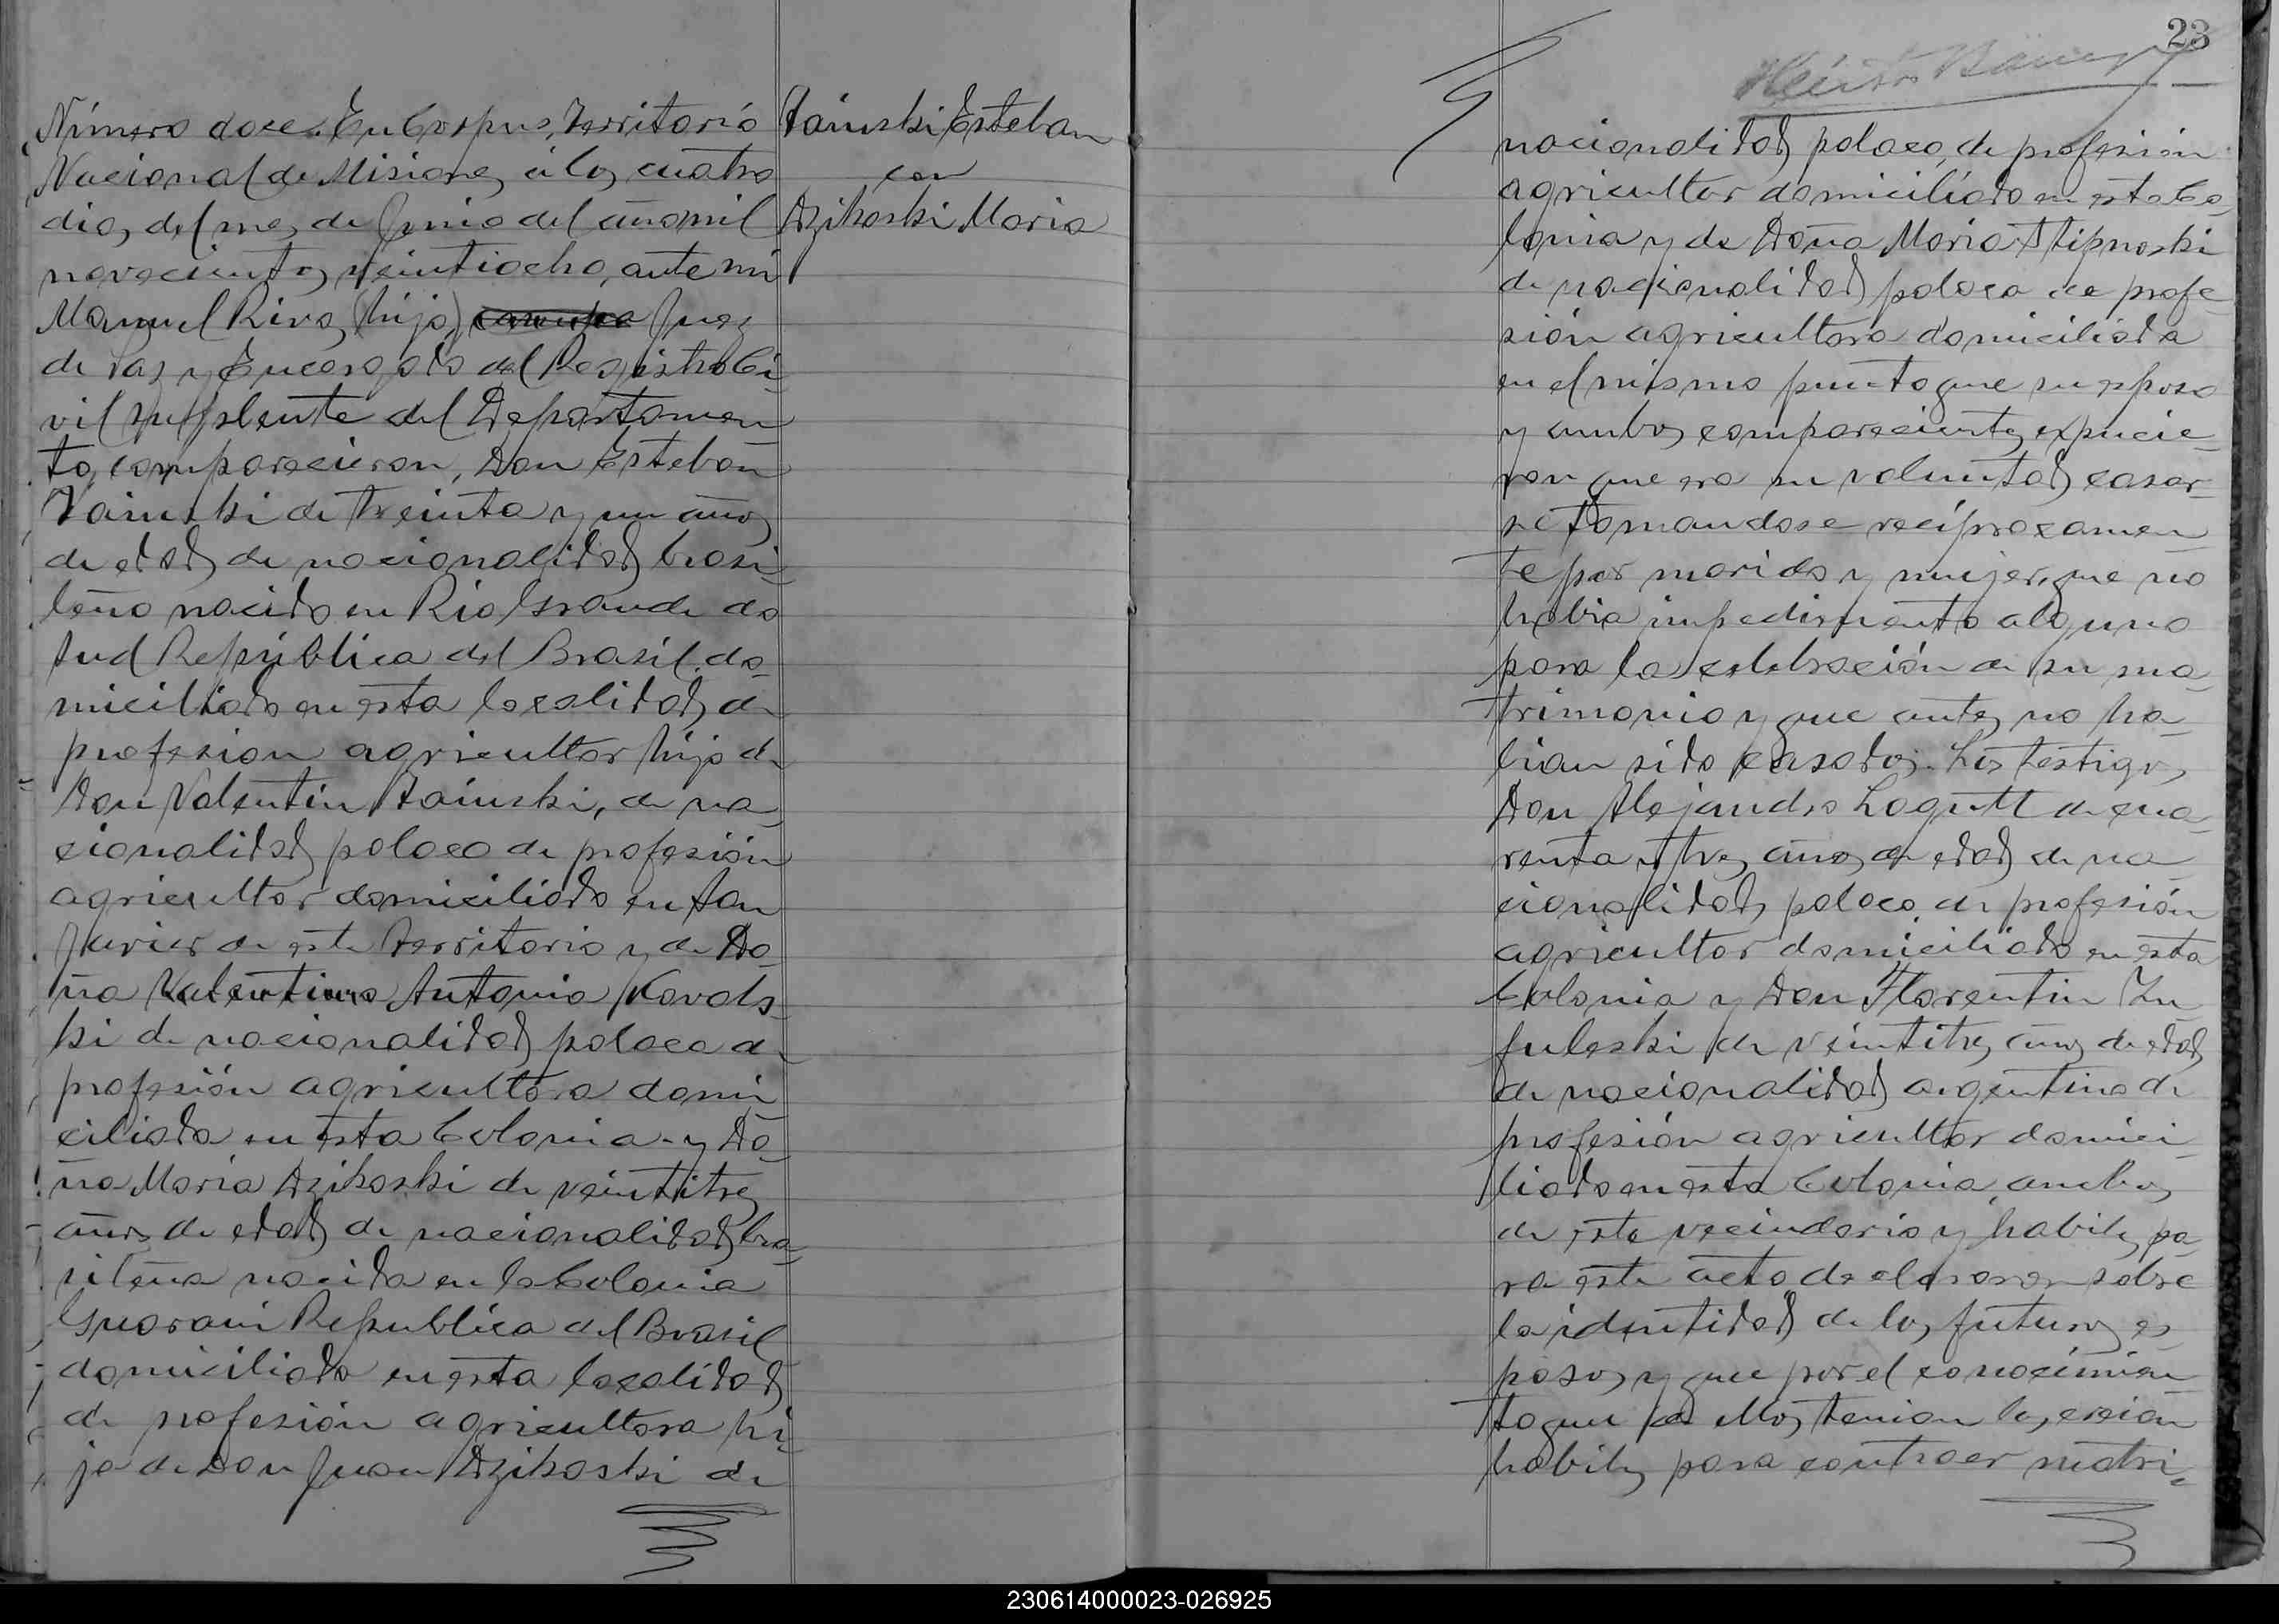 Número doce. En Corpus, Territorio
Nacional de Misiones, á los cuatro
dias del mes de Junio del año mil
novecientos veintiocho, ante mi
Manuel Rivas (hijo) Juez
de Paz y Encargado del Registro Ci-
vil suplente del Departamen-
to, comparecieron, Don Esteban
Sainski de treinta y un años
de edad, de nacionalidad brasi-
leño nacido en Rio Grande do
Sud República del Brasil, do-
miciliado en esta localidad, de
profesion agricultor hijo de
Don Valentin Sainski, de na-
cionalidad polaco de profesión
agricultor domiciliado en San
Javier de este Territorio y de Do-
ña Valentina Antonia Kovals-
ki de nacionalidad polaca de
profesión agricultora domi-
ciliada en esta Colonia. y Do-
ña Maria Dzikoski de veintitres
años de edad, de nacionalidad bra-
sileña nacida en la Colonia
Guarani República del Brasil
domiciliada en esta localidad
de profesión agricultora hi-
ja de Don Juan Dzikoski de
Sainski Esteban
con
Dzikoski Maria
23
nacionalidad polaco, de profesión
agricultor domiciliado en esta Co-
lonia y de Doña Maria Stipnoski
de nacionalidad polaca de profe-
sión agricultora domiciliada
en el mismo punto que su esposo
y ambos comparecientes expucie-
ron que era su voluntad casar-
se tomandose reciprocamen-
te por marido y mujer, que no
habia impedimento alguno
para la celebración de su ma-
trimonio y que antes no ha-
bian sido casados. Los testigos
Don Alejandro Logutt de cua-
renta y tres años de edad de na-
cionalidad, polaco, de profesión
agricultor domiciliado en esta
Colonia y Don Florentin Zu
fuleski de veintitres años de edad,
de nacionalidad argentino de
profesión agricultor domici-
liado en esta Colonia, ambos
de este vecindario y habiles pa-
ra este acto declararon sobre
la identidad de los futuros es-
posos, y que por el conocimien-
to que de ellos tenian los creian
habiles para contraer matri-